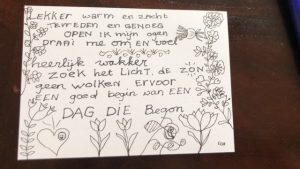 LEKKER warm en zacht
TEVREDEN en GENOEG
OPEN IK mijn ogen
DRAAI me om EN voel
heerlijk wakker
ZOEK het Licht. de ZON
geen wolken ERVOOR
EEN goed begin van EEN
DAG DIE Begon